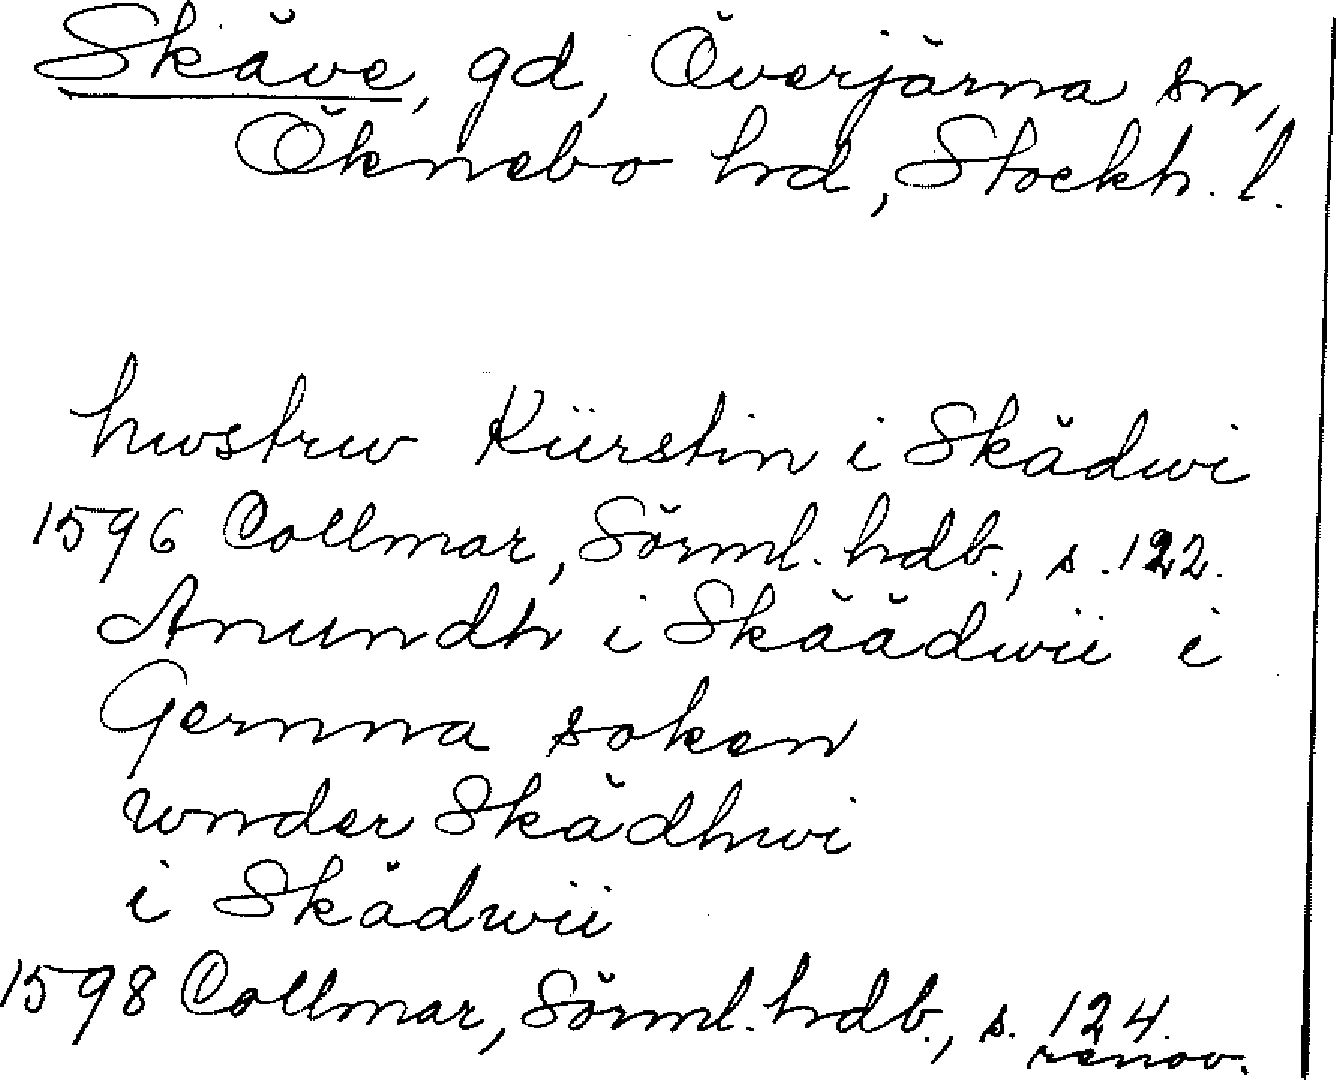 Skäve, gd, Överjärna sn,
Öknebo hd, Stockh. l.
hwstrw Kiirstin i Skädwi
1596 Collmar, Sörml. hdb., s. 122.
Anundh i Skäädwii i
Gernna soken
wnder Skädhwi
i Skädwii
1598 Collmar, Sörml. hdb., s. 124.
renov.